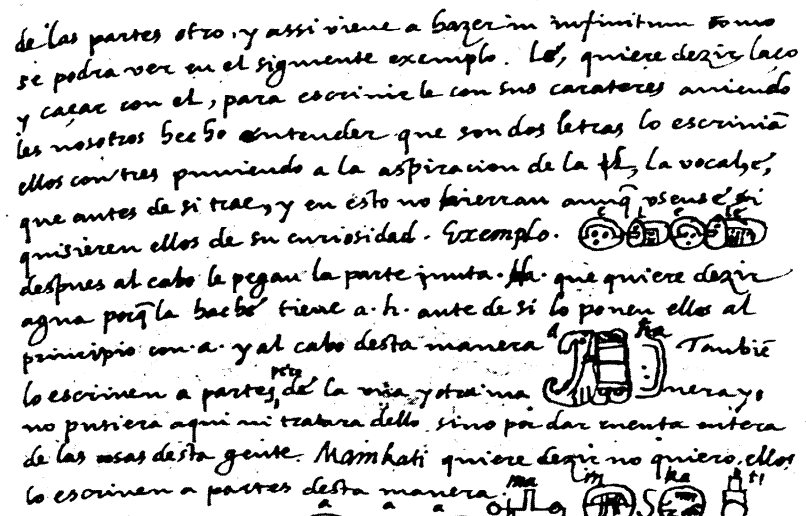 de las partes otro, y assi viene a hazer in infinitum como
se podra ver en el siguiente exemplo. Lé, quiere dezir laço
y caçar con el, para escrivir le con sus carateres aviendo
les nosotros hecho entender que son dos letras lo escrivia͂
ellos con tres puniendo a la aspiracion de la l, la vocal, é,
que antes de si trae, y en esto no hierran aunq̃ usense si
quisieren ellos de su curiosidad. Exemplo. e l e le
despues al cabo le pegan la parte junta. Ha. que quiere dezir
agua porq̃ la hache tiene a. h. ante de si lo ponen ellos al
principio con. a. y al cabo desta manera a ha Tambie͂
lo escriven a partes, pero de la una y otra ma nera y.
no pusiera aqui ni tratara dello sino por dar cuenta entera
de las cosas desta gente. Mainkati quiere dezir no quiero, ellos
lo escriven a partes desta manera. ma in ka ti
a a a